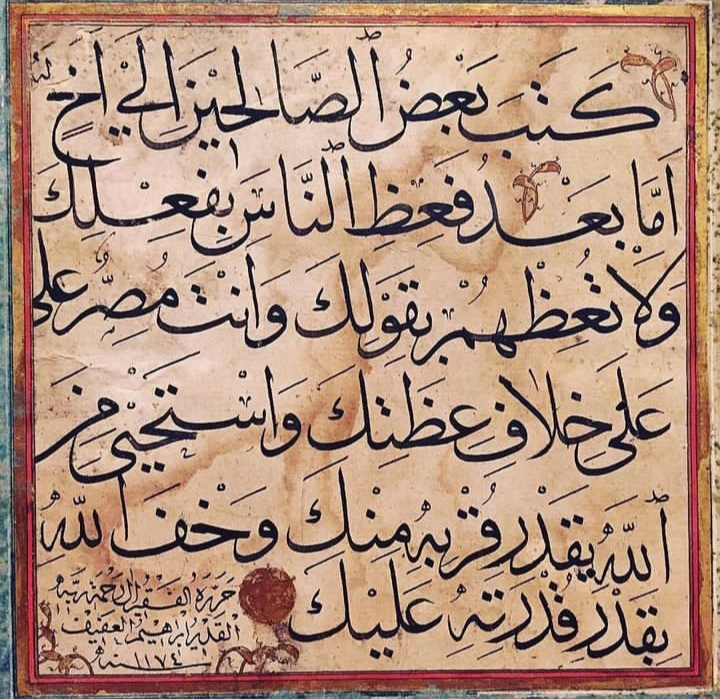 كَتَبَ بَعْضُ الصَّالِحِيْنَ اِلٰي اَخٍ لَهُ
اَمَّا بَعْدُ فَعِظِ النَّاسَ بِفِعْلِكَ
وَلَا تَعِظْهُمْ بِقَوْلِكَ وَاَنْتَ مُصِرٌّ عَلى
عَلٰى خِلَافِ عِظَتِكَ وَاسْتَحْيِي مِنَ
اللّٰهِ بِقَدْرِ قُرْبِهِ مِنْكَ وَخَفِ اللّٰهَ
بِقَدْرِ قُدْرَتِهِ عَلَيْكَ
حرره الفقير الى رحمة ربه
القدير ابراهيم العفيف
سنه ١١٧٤